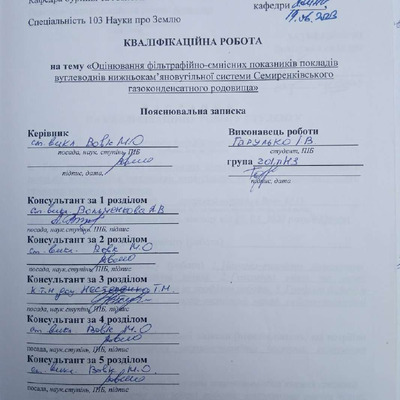 кафедри
19.06.2023
Спеціальність 103 Науки про Землю
КВАЛІФІКАЦІЙНА РОБОТА
на тему «Оцінювання фільтраційно-ємнісних показників покладів
вуглеводнів нижньокам'яновугільної системи Семиренківського
газоконденсатного родовища»
Пояснювальна записка
Керівник
ст. викл. Вовк М.О
посада, наук. ступінь, ПІБ
підпис, дата
Виконавець роботи
І.В.
студент, ПІБ
група
підпис, дата
Консультант за 1 розділом
ст. викл. А.В.
посада, наук.ступінь, ПІБ, підпис
Консультант за 2 розділом
ст. викл. Вовк М.О
посада, наук.ступінь, ПІБ, підпис
Консультант за 3 розділом
к.т.н доц. Т.М.
посада, наук.ступінь, ПІБ, підпис
Консультант за 4 розділом
ст. викл. Вовк М.О
посада, наук.ступінь, ПІБ, підпис
Консультант за 5 розділом
ст. викл. Вовк М.О.
посада, наук.ступінь, ПІБ, підпис